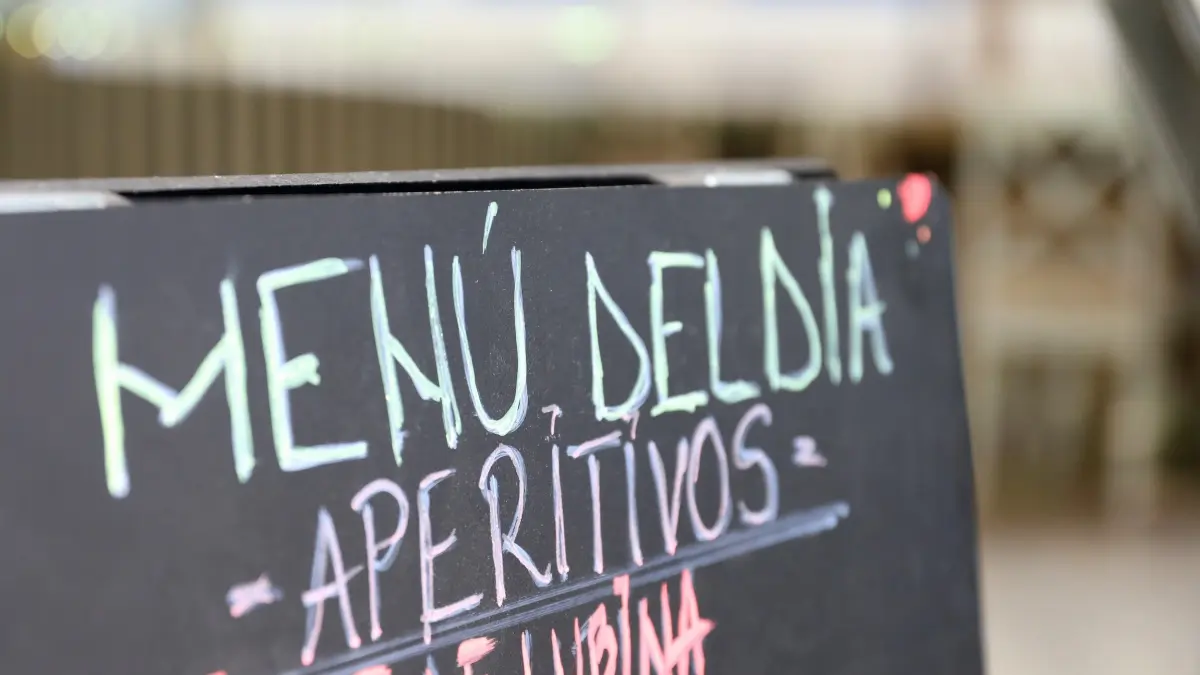 MENÚ DEL DÍA
- APERITIVOS -
LUBINA